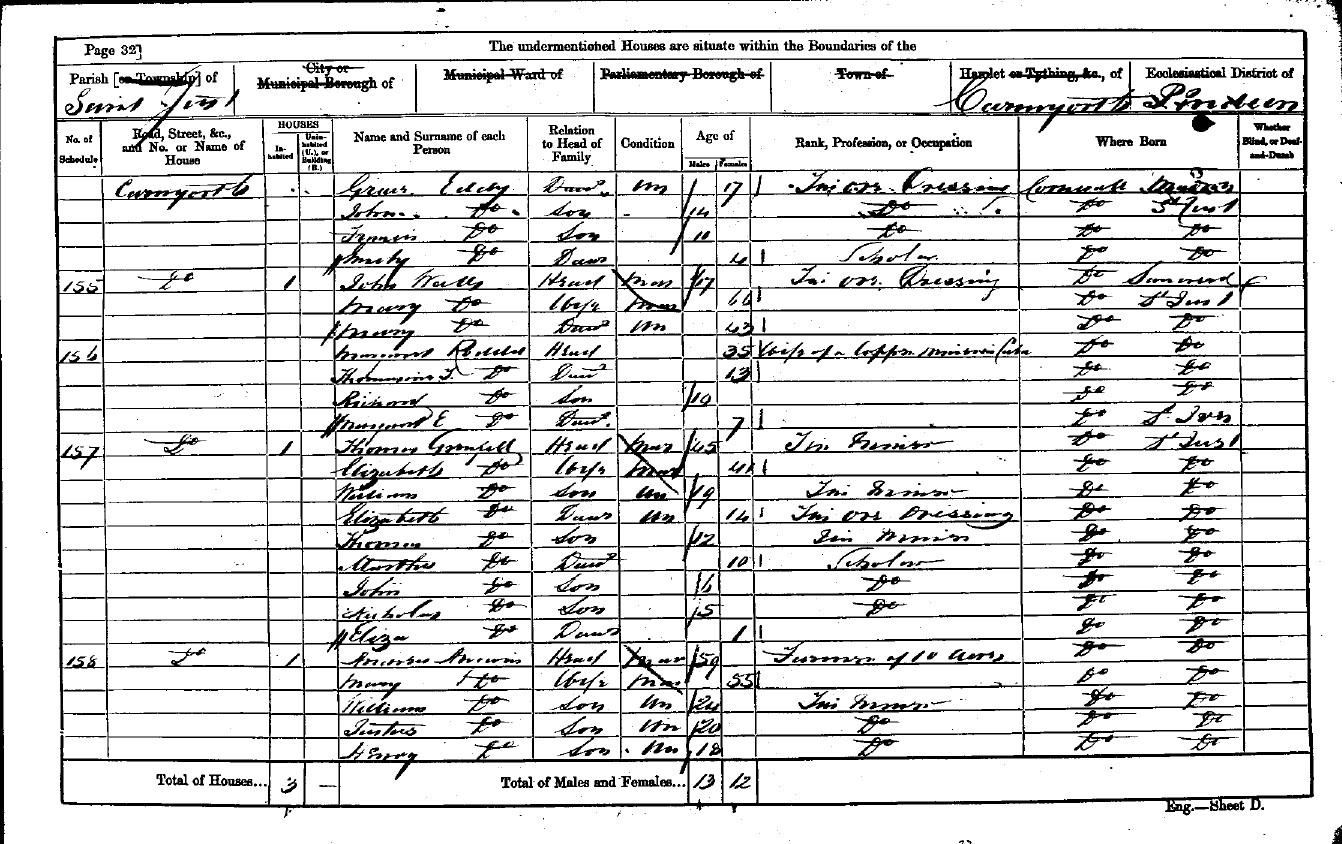 Page 32]
The undermentioned Houses are situate within the Boundaries of the
Parish [or Township] of
City or Municipal Borough of
Municipal Ward of
Parliamentary Borough of
Town of
Hamlet or Tything, &c., of
Ecclesiastical District of
Saint Just
Carnyorth Pendeen
No. of Schedule
Road, Street, &c., and No. or Name of House
HOUSES
In-habited
Unin-habited (U.), or Building (B.)
Name and Surname of each Person
Relation to Head of Family
Condition
Age of
Males Females
Rank, Profession, or Occupation
Where Born
Whether Blind, or Deaf-and-Dumb
Carnyorth Grace Eddy Daur Un 17 Tin ore Dressing Cornwall
John Do Son 14 Do Do St Just
Francis Do Son 10 Do Do Do
Emily Do Daur 4 Scholar Do Do
155 Do 1 John Wall Head Mar 67 Tin ore Dressing Do
Mary Do Wife Mar Do St Just
Mary Do Daur Un 43 Do Do
156 Margaret Head 35 Wife of a Copper Miner in Cuba Do Do
Thomasine Do Daur 13 Do Do
Richard Do Son 10 Do Do
Margaret E Do Daur 7 Do St Ives
157 Do 1 Thomas Grenfell Head Mar 45 Tin Miner Do St Just
Elizabeth Do Wife Mar 41 Do Do
William Do Son Un 19 Tin Miner Do Do
Elizabeth Do Daur Un 14 Tin ore Dressing Do Do
Thomas Do Son 12 Tin Miner Do Do
Martha Do Daur 10 Scholar Do Do
John Do Son 6 Do Do Do
Nicholas Do Son 5 Do Do Do
Eliza Do Daur 1 Do Do
158 Do 1 Head Mar 59 Farmer of 10 Acres Do Do
Mary Do Wife Mar 55 Do Do
William Do Son Un 24 Tin Miner Do Do
Justus Do Son Un 20 Do Do Do
Henry Do Son Un 18 Do Do Do
Total of Houses... 3 — Total of Males and Females... 13 12
Eng.—Sheet D.